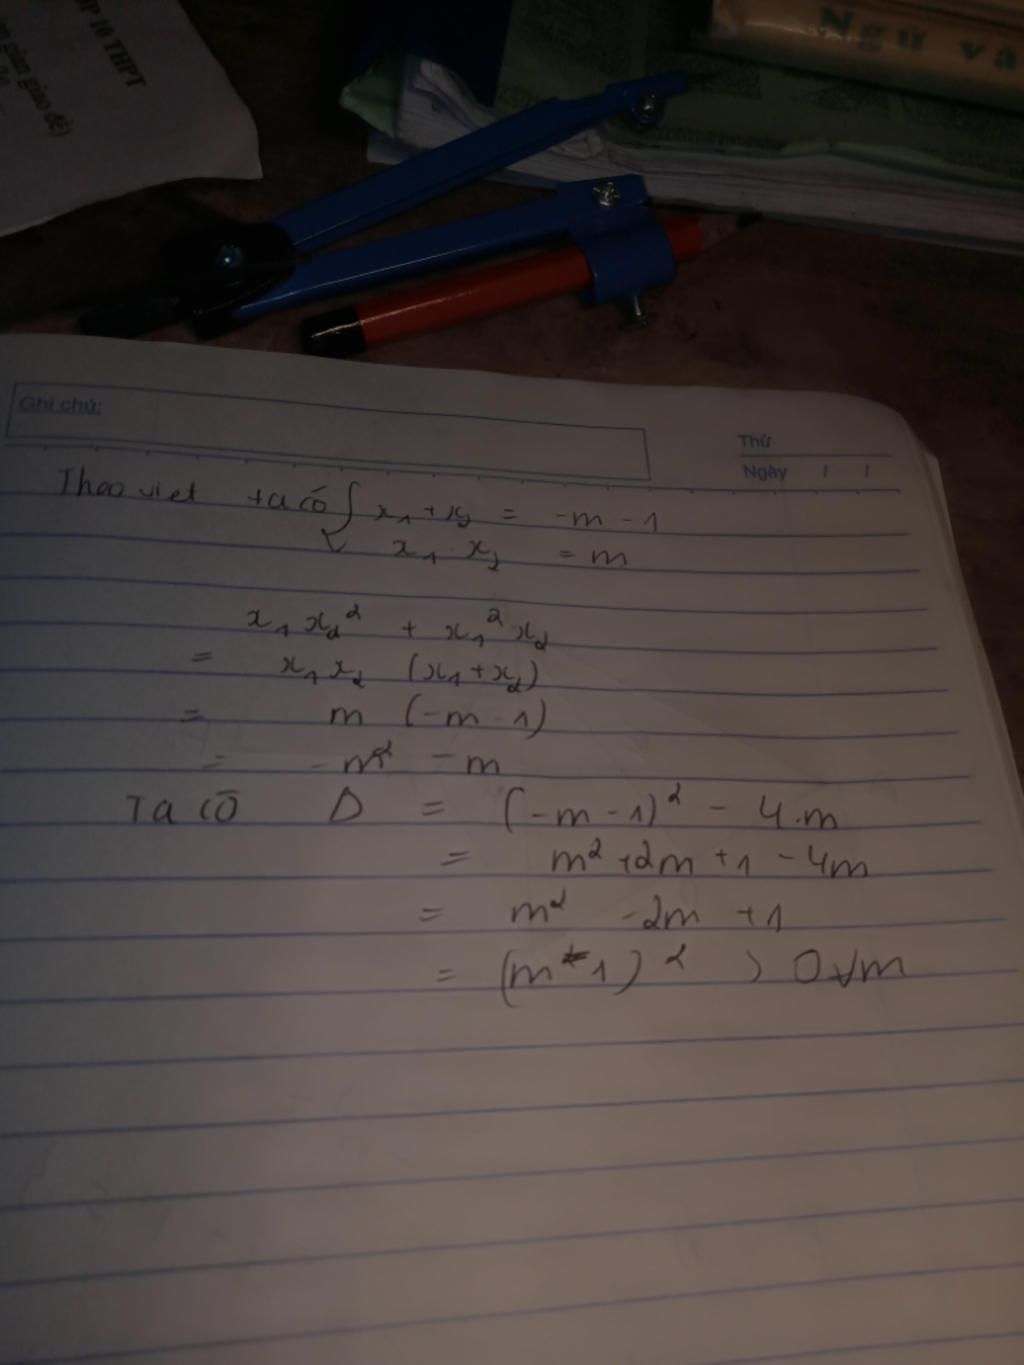 ỚP 10 THPT
gian giao đề)
Ngữ vă
Ghi chú:
Thứ
Ngày / /
Theo viet ta có { x₁ + x₂ = -m - 1
x₁ x₂ = m
x₁x₂² + x₁²x₂
= x₁x₂ (x₁+x₂)
= m (-m - 1)
= -m² - m
Ta có Δ = (-m - 1)² - 4.m
= m² +2m +1 - 4m
= m² -2m +1
= (m - 1)² > 0 ∀m